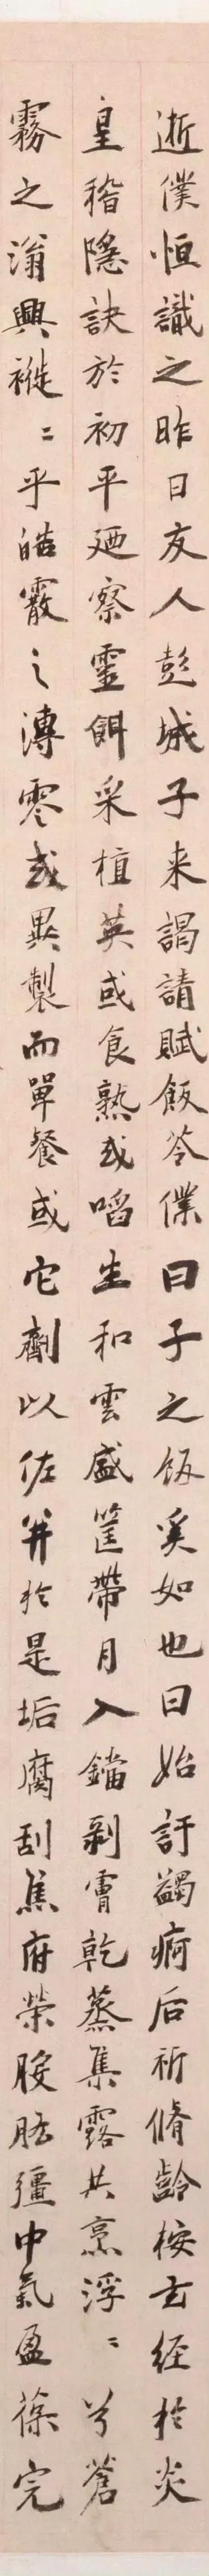 逝僕恒識之昨日友人彭城子来謁請賦飯苓僕曰子之飯奚如也曰始訏蠲痾后祈脩齡桉玄经扵炎
皇稽隱訣於初平廼察靈餌采植英或食熟或啗生和雲盛筐帶月入鐺剥霄乾蒸集露共烹浮〻兮蒼
霧之滃興褷〻乎皓霰之漙零或異製而單餐或它劑以佐并扵是垢腐刮焦府荣胺胠彊中氣盈葆完